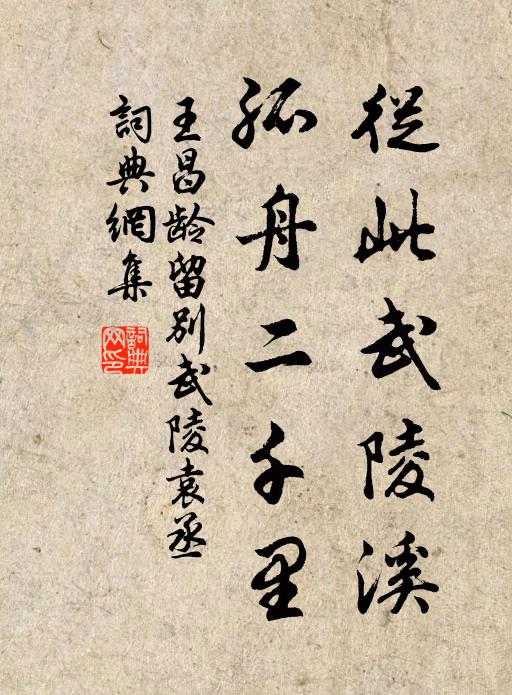 從此武陵溪
孤舟二千里
王昌龄留别武陵袁丞
詞典網集
詞典網印